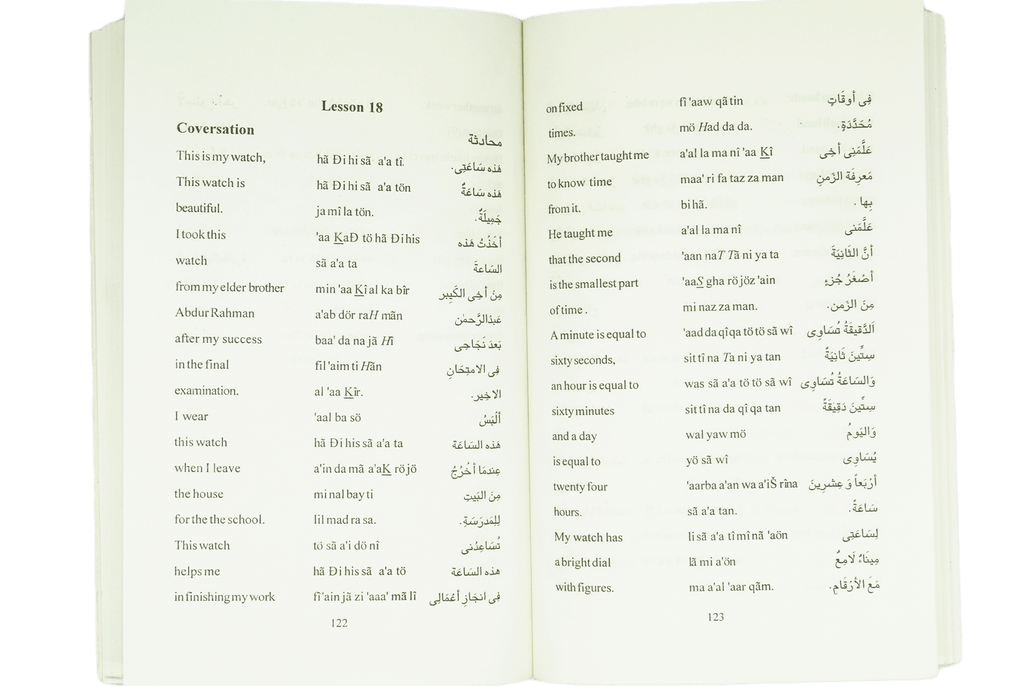 Lesson 18
Coversation محادثة
This is my watch, hã Đi hi sã a'a tî. هٰذه سَاعَتِى.
This watch is hã Đi hi sã a'a tön هٰذه سَاعَةٌ
beautiful. ja mî la tön. جَمِيلَةٌ.
I took this 'aa KaĐ tö hã Đi his أخَذْتُ هٰذه
watch sã a'a ta السَّاعةَ
from my elder brother min 'aa Kî al ka bîr مِنْ أخِى الكَبِير
Abdur Rahman a'ab dör raH mãn عَبدُالرَّحمٰن
after my success baa' da na jã Hî بَعدَ نَجَاحِى
in the final fil 'aim ti Hãn فِى الامتِحَانِ
examination. al 'aa Kîr. الاخِير.
I wear 'aal ba sö ألْبَسُ
this watch hã Đi his sã a'a ta هٰذه السَّاعَة
when I leave a'in da mã a'aK rö jö عِندمَا أخْرُجُ
the house mi nal bay ti مِنَ البَيتِ
for the the school. lil mad ra sa. لِلمَدرَسَةِ.
This watch tö sã a'i dö nî تُسَاعِدُنى
helps me hã Đi his sã a'a tö هٰذه السَّاعَة
in finishing my work fî 'ain jã zi 'aaa' mã lî فِى انجَازِ أعْمَالِى
122
on fixed fî 'aaw qã tin فِى أوقَاتٍ
times. mö Had da da. مُحَدَّدَةٍ.
My brother taught me a'al la ma nî 'aa Kî عَلَّمَنِى أخِى
to know time maa' ri fa taz za man مَعرِفَة الزَّمنِ
from it. bi hã. بِها .
He taught me a'al la ma nî عَلَّمَنى
that the second 'aan naT Tã ni ya ta أنَّ الثَّانِيَةَ
is the smallest part 'aaS gha rö jöz 'ain أصْغَرُ جُزءٍ
of time . mi naz za man. مِنَ الزَّمن.
A minute is equal to 'aad da qî qa tö tö sã wî اَلدَّقِيقَةُ تُسَاوِى
sixty seconds, sit tî na Ta ni ya tan سِتِّينَ ثَانِيَةً
an hour is equal to was sã a'a tö tö sã wî وَالسَّاعَةُ تُسَاوِى
sixty minutes sit tî na da qî qa tan سِتِّينَ دَقِيقَةً
and a day wal yaw mö وَاليَومُ
is equal to yö sã wî يُسَاوِى
twenty four 'aarba a'an wa a'iŠ rîna أرْبَعاً وَ عِشرِينَ
hours. sã a'a tan. سَاعَةً.
My watch has li sã a'a tî mî nã 'aön لِسَاعَتِى
a bright dial lã mi a'ön مِينَاءٌ لَامِعٌ
with figures. ma a'al 'aar qãm. مَعَ الأرْقَامِ.
123